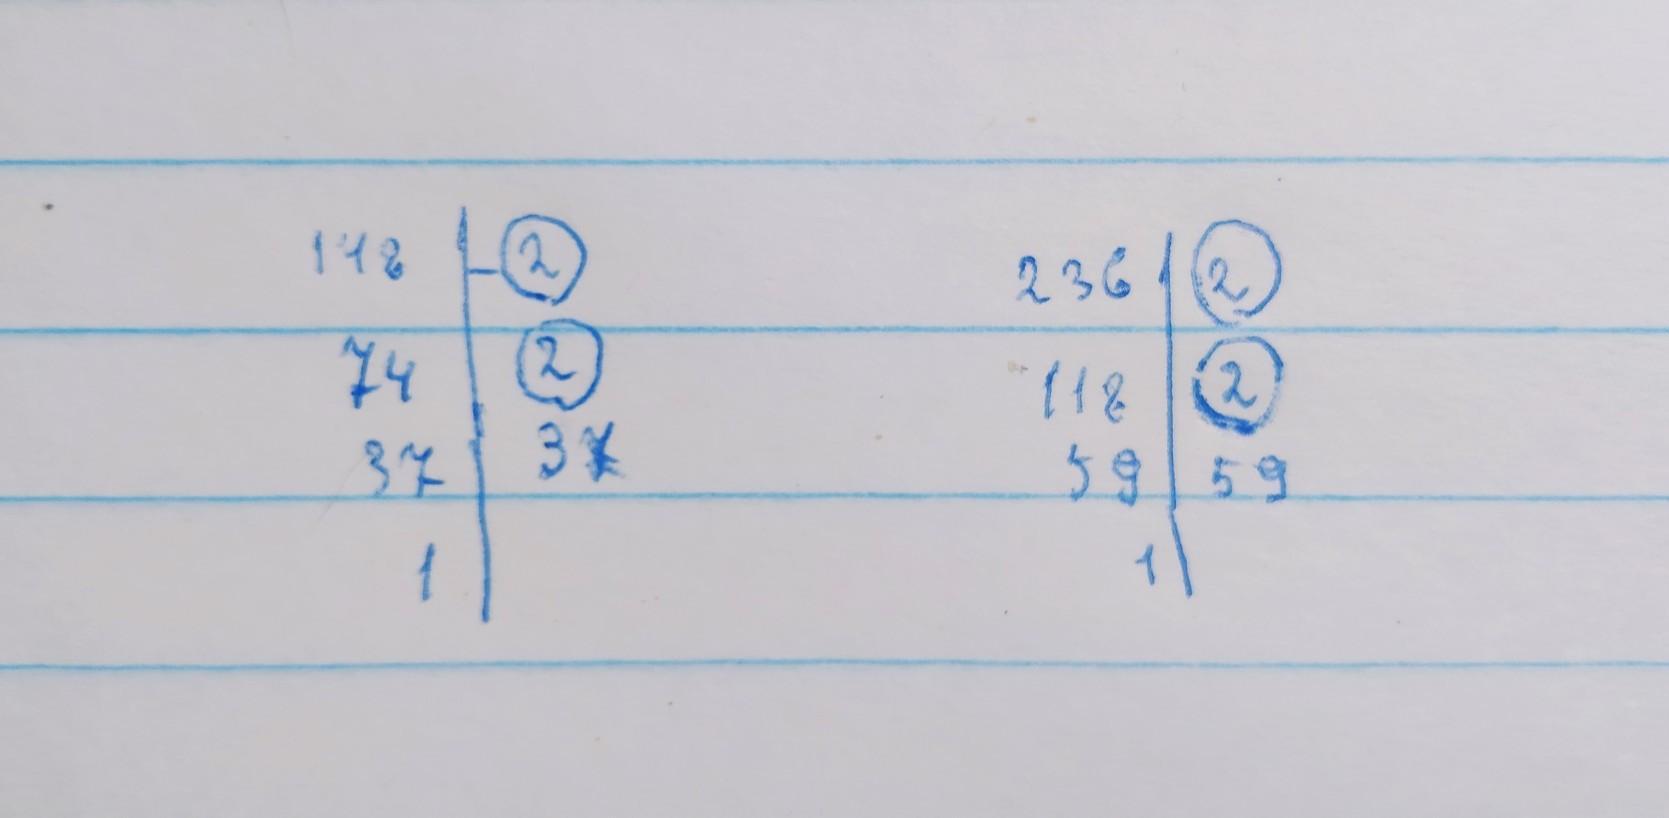 148 | 2
74 | 2
37 | 37
1 |
236 | 2
118 | 2
59 | 59
1 |